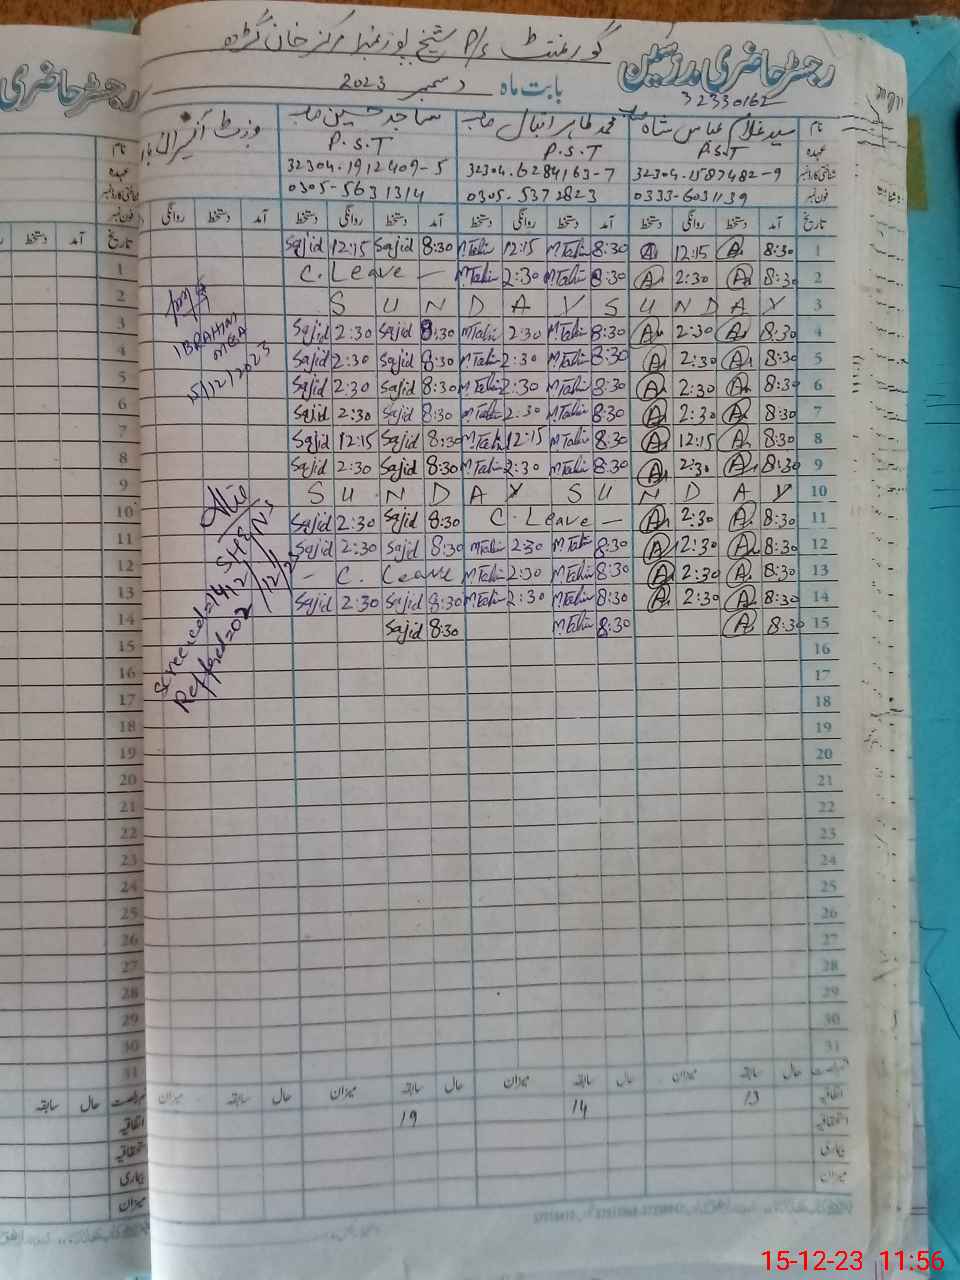 رجسٹر حاضری مدرسین گورنمنٹ P/S شیخ پور منہا مرکز خان گڑھ
32330162
بابت ماہ دسمبر 2023
نام سید غلام عباس شاہ صاحب محمد طاہر اقبال صاحب ساجد حسین صاحب وزٹ آفیسرال
عہدہ P.S.T P.S.T P.S.T
شناختی کارڈ نمبر 32304-1587482-9 32304-6284163-7 32304-1912409-5
فون نمبر 0333-6031139 0305-5372823 0305-5631314
تاریخ آمد دستخط روانگی دستخط آمد دستخط روانگی دستخط آمد دستخط روانگی دستخط آمد دستخط روانگی
Sajid 12:15 Sajid 8:30 M.Tahir 12:15 M.Tahir 8:30 A 12:15 A 8:30 1
C. Leave – M.Tahir 2:30 M.Tahir 8:30 A 2:30 A 8:30 2
S U N D A Y S U N D A Y 3
Sajid 2:30 Sajid 8:30 M.Tahir 2:30 M.Tahir 8:30 A 2:30 A 8:30 4
Sajid 2:30 Sajid 8:30 M.Tahir 2:30 M.Tahir 8:30 A 2:30 A 8:30 5
Sajid 2:30 Sajid 8:30 M.Tahir 2:30 M.Tahir 8:30 A 2:30 A 8:30 6
Sajid 2:30 Sajid 8:30 M.Tahir 2:30 M.Tahir 8:30 A 2:30 A 8:30 7
Sajid 12:15 Sajid 8:30 M.Tahir 12:15 M.Tahir 8:30 A 12:15 A 8:30 8
Sajid 2:30 Sajid 8:30 M.Tahir 2:30 M.Tahir 8:30 A 2:30 A 8:30 9
S U N D A Y S U N D A Y 10
Sajid 2:30 Sajid 8:30 C. Leave – A 2:30 A 8:30 11
Sajid 2:30 Sajid 8:30 M.Tahir 2:30 M.Tahir 8:30 A 12:30 A 8:30 12
– C. Leave M.Tahir 2:30 M.Tahir 8:30 A 2:30 A 8:30 13
Sajid 2:30 Sajid 8:30 M.Tahir 2:30 M.Tahir 8:30 A 2:30 A 8:30 14
Sajid 8:30 M.Tahir 8:30 A 8:30 15
16
17
18
19
20
21
22
23
24
25
26
27
28
29
30
31
IBRAHIM
MEA
15/12/2023
SHE/NS
Screened=14/12/
Reffered=02/12/23
حال سابقہ میزان حال سابقہ میزان حال سابقہ میزان حال سابقہ میزان
اتفاقیہ 13 14 19
استحقاقیہ
بیماری
میزان
رجسٹر حاضری
نام
عہدہ
شناختی کارڈ نمبر
فون نمبر
تاریخ آمد دستخط
1
2
3
4
5
6
7
8
9
10
11
12
13
14
15
16
17
18
19
20
21
22
23
24
25
26
27
28
29
30
31
حال سابقہ
اتفاقیہ
استحقاقیہ
بیماری
میزان
15-12-23 11:56